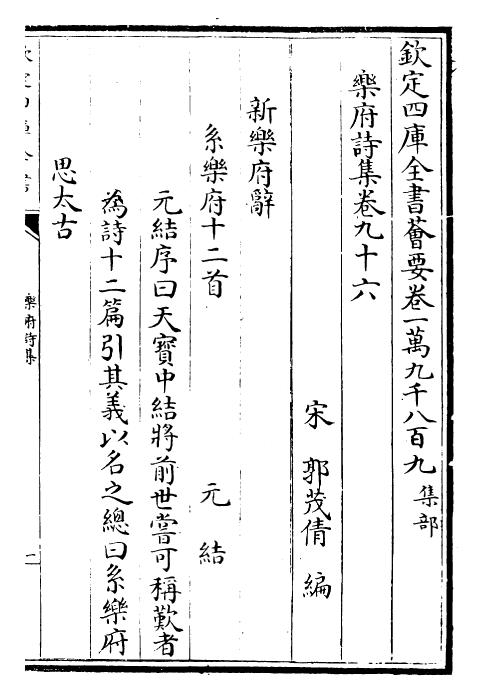 欽定四庫全書薈要卷一萬九千八百九 集部
樂府詩集卷九十六
宋 郭茂倩 編
新樂府辭
系樂府十二首 元結
元結序曰天寶中結將前世嘗可稱歎者
為詩十二篇引其義以名之總曰系樂府
思太古
樂府詩集
一